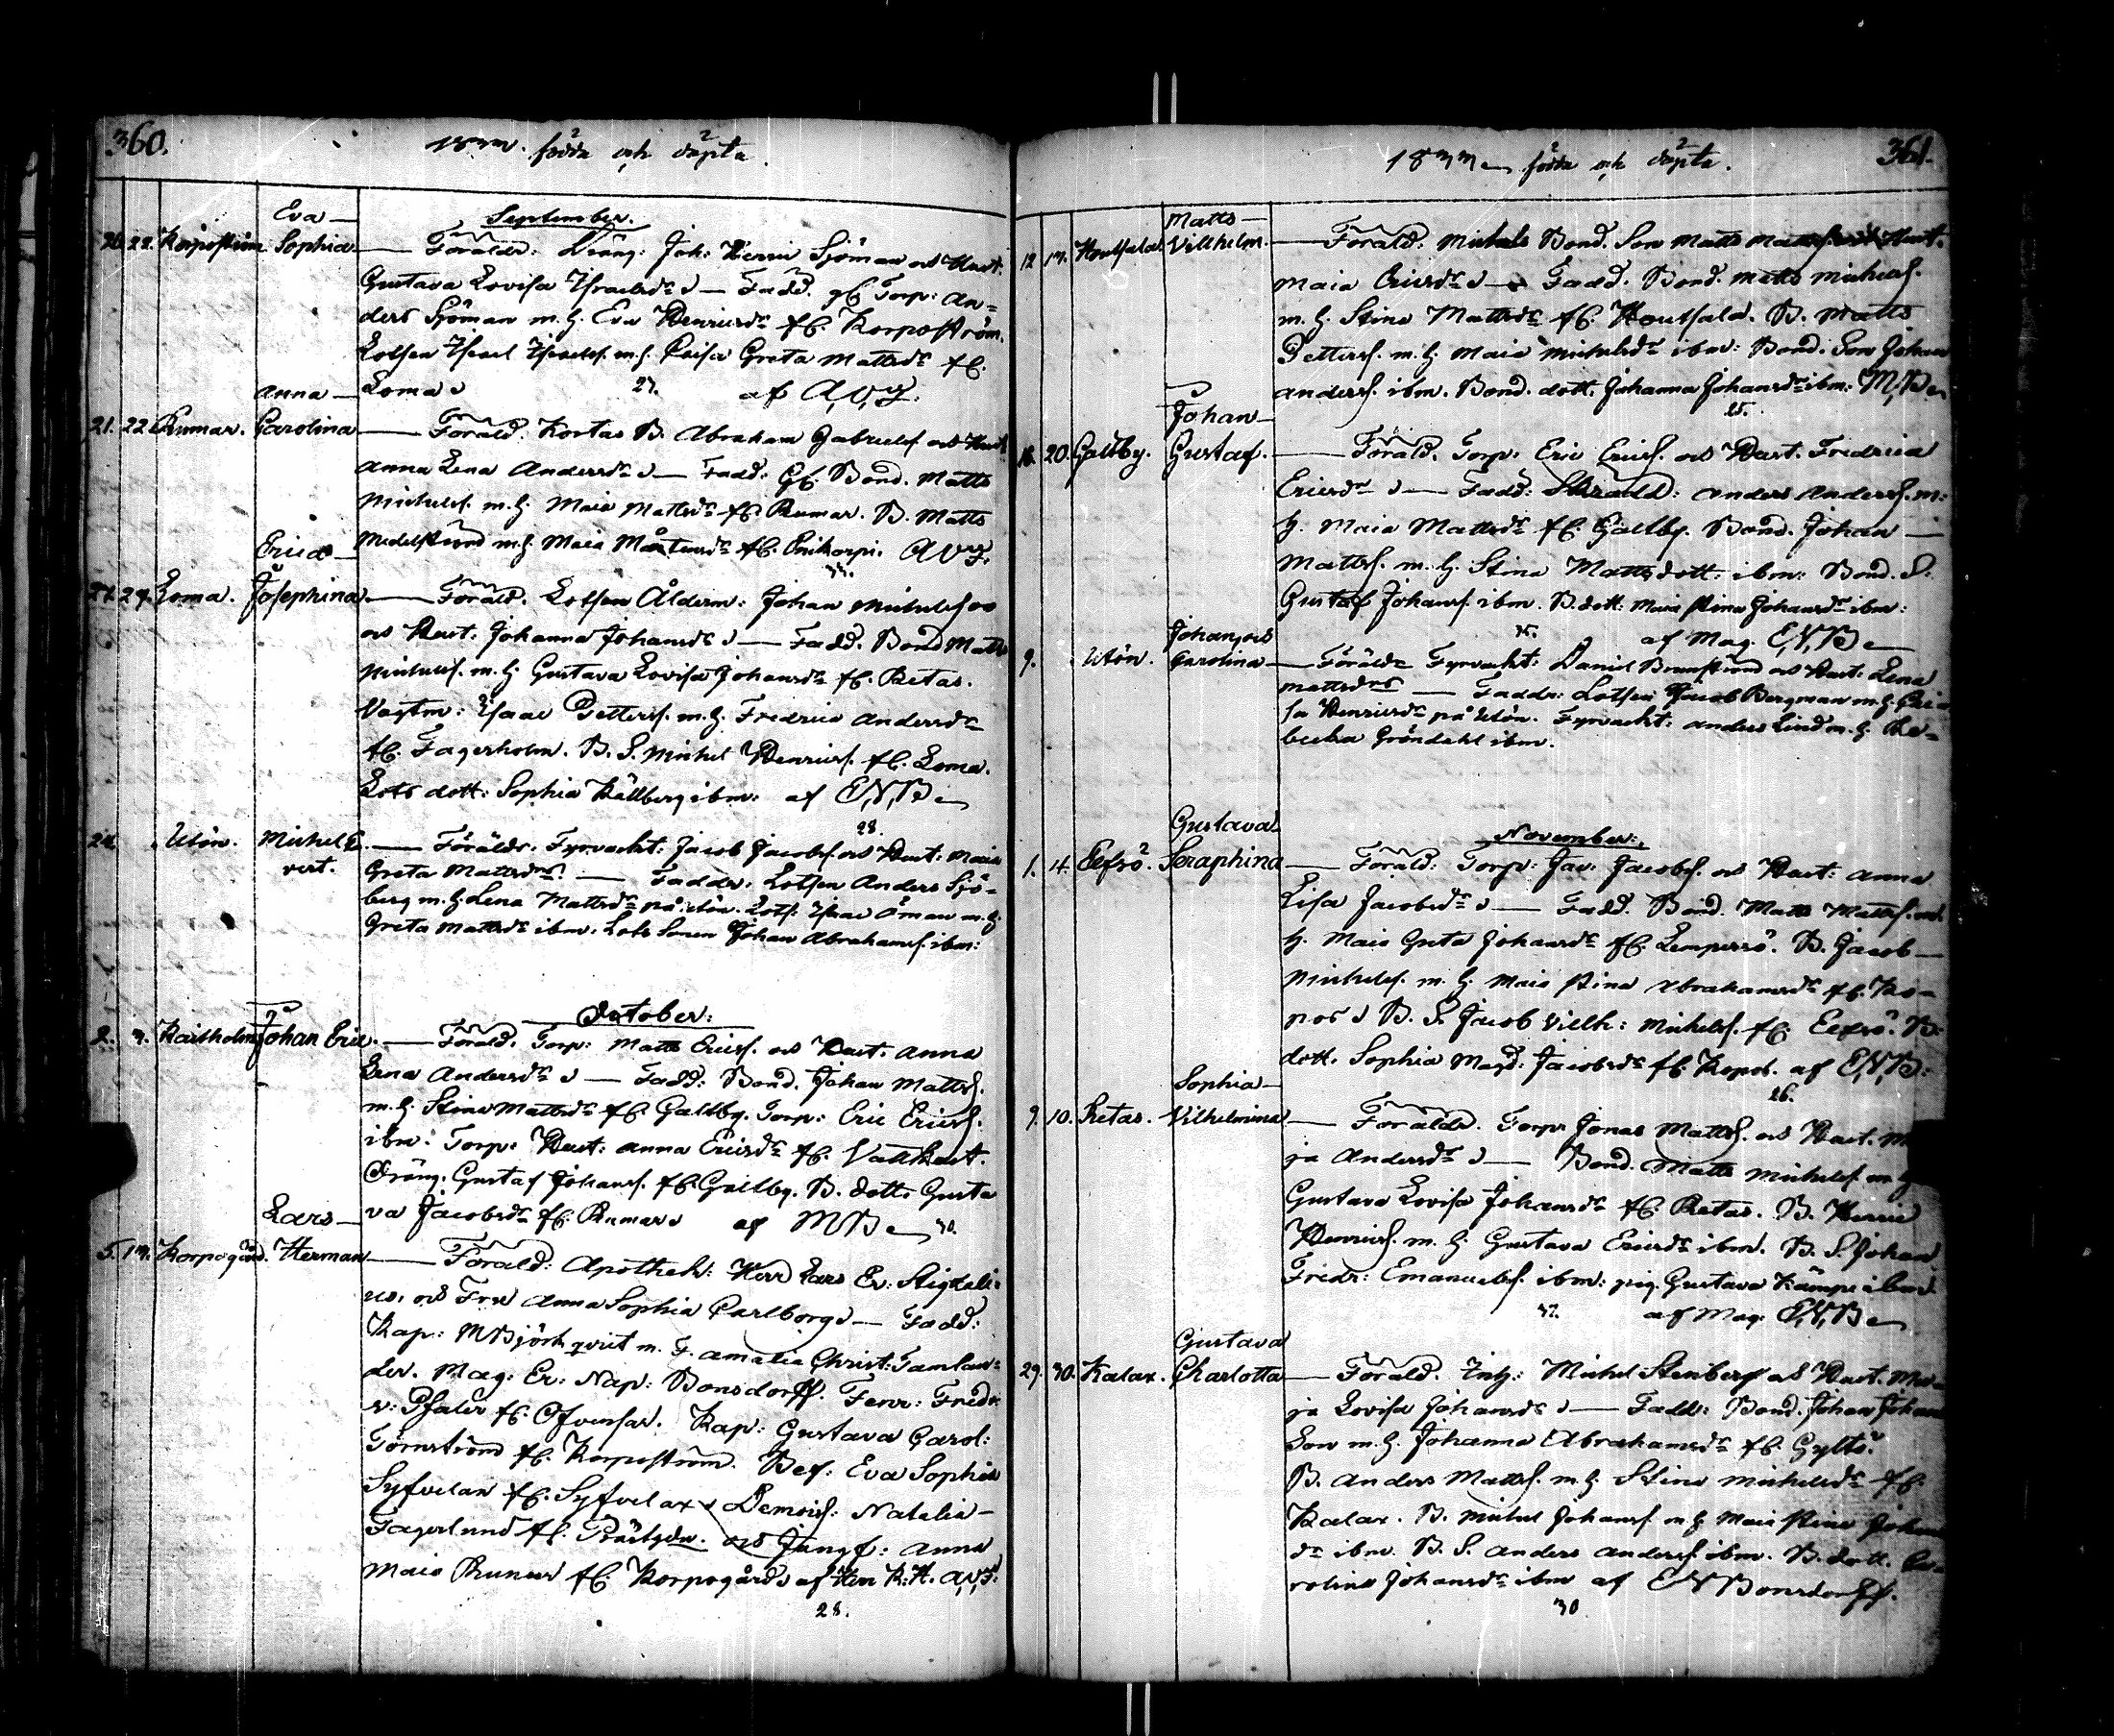 360.
1833. födda och döpta.
Eva —
September.
20. 22. Korpoström Sophia — Föräldr: Dräng: Joh: Henric Sjöman och Hust.
Gustava Lovisa Israelsdr — Fadd. gb Torp: An=
ders Sjöman m. h. Eva Henricsdr fr. Korpoström.
Lotsen Israel Israelss. m. h. Caisa Greta Mattsdr fr.
Anna — Loma 27. af A.V.I.
21. 22 Rumar. Carolina — Föräld. Kortas B. Abraham Gabrielss. och Hust
Anna Lena Andersdr — Fadd: Gb. Bond. Matts
Michelss. m. h. Maia Mattsdr fr. Rumar. B. Matts
Erica — m. h. Maia Mårtensdr fr.
27. 29. Loma. Josephina. — Föräld. Lotsen Ålderm: Johan Michelsson
och Hust. Johanna Johansdr — Fadd. Bond Matts
Michelss. m. h. Gustava Lovisa Johansdr fr. Retas.
Vagtm: Isaac Petterss. m. h. Fredrica Andersdr
fr. Fagerholm. B. S. Michel Henricss. fr. Loma.
Lots dott: Sophia Källberg ibm: af E.N.B
28.
24 Utön. Michel E — Föräldr. Fyrvackt: Jacob Jacobss. och Hust: Maria
vert. Greta Mattsdr — Faddr: Lotsen Anders Sjö-
berg m. h. Lena Mattsdr på Utön. Lots: Isac Öman m. h.
Greta Mattsdr ibm. Lots Sonen Johan Abrahamss. ibm:
October:
2. 3. Kaitholm Johan Eric. — Föräld. Torp: Matts Ericss. och Hust. Anna
Lena Andersdr — Fadd: Bond. Johan Mattss.
m. h. Stina Mattsdr fr. Galtby. Torp: Eric Ericss.
ibm. Torp: Hust: Anna Ericsdr fr. Vattkast.
Dräng. Gustaf Johanss. fr. Galtby. B. dott. Gusta
Lars — va Jacobsdr fr. Rumar af MB 30.
5. 13. Korpogård. Herman — Föräld: Apothek: Herr Lars Er: Stigzeli-
us, och Fru Anna Sophia Carlborg — Fadd:
Kap: M Björkqvist m. F. Amalia Christ: Tamlan-
der. Mag: Er: Nap: Bonsdorff. Fenr: Fredr.
v: Pfaler fr. Ofvensar. Kap: Gustava Carol:
Törnström fr. Korpoström. Bef: Eva Sophia
Syfvelan fr. Syfvelax. Demois: Natalia —
Fagerlund fr. Prästgdn. och Jungf: Anna
Maia Runeur fr. Korpogård af Herr K: H. A.V.I.
28.
1833 födda och döpta.
361.
Matts —
12 13. Houtsala. Vilhelm. — Föräld. Michels Bond. Son Matts Mattss. och Hust.
Maia Ericsdr — Fadd. Bond. Matts Michelss.
m. h. Stina Mattsdr fr. Houtsala. B. Matts
Petterss. m. h. Maia Michelsdr ibm: Bond. Son Johan
Anderss. ibm. Bond. dott. Johanna Johansdr ibm. M.B
25.
Johan —
20. Galtby. Gustaf. — Föräld. Torp: Eric Ericss. och Hust. Fredrica
Ericsdr — Fadd: Skradd: Anders Anderss. m:
h. Maia Mattsdr fr. Galtby. Bond. Johan —
Mattss. m. h. Stina Mattsdott: ibm: Bond. S:
Gustaf Johanss. ibm. B. dott: Maia Stina Johansdr ibm:
35. af Mag. E.N.B
9. Utön. Carolina — Föräldr Fyrvackt: Daniel Brunström och Hust: Lena
Mattsdr — Faddr: Lotsen Jacob Bergman m. h. Cai
sa Henricsdr på Utön. Fyrvackt: Anders Lind m. h. Re-
becka Gröndahl ibm.
Gustava
November:
1. 4. Eefsö. Seraphina — Föräld: Torp: Gav: Jacobss. och Hust: Anna
Lisa Jacobsdr — Fadd. Bond. Matts Mattss. m.
h. Maia Greta Johansdr fr. Lempersö. B. Jacob —
Michelss. m. h. Maia Stina Abrahamsdr fr. Ko-
pos B. S. Jacob Vilh: Michelss. fr. Eefsö. B.
dott. Sophia Magd: Jacobsdr fr. Kopos. af E.N.B.
26.
Sophia —
9. 10. Retas. Vilhelmina — Föräldr. Torpr Jonas Mattss. och Hust. Ma
ja Andersdr — Bond. Matts Michelss. m. h
Gustava Lovisa Johansdr fr. Retas. B. Henric
Henricss. m. h. Gustava Ericsdr ibm. B. S. Johan
Fredr: Emanuelss. ibm: pig. Gustava Kämpe ibm
37. af Mag. E.N.B
Gustava
29. 30. Kalax. Charlotta — Föräld. Inh: Michel Stenberg och Hust. Ma-
ja Lovisa Johansdr — Fadd: Bond. Johan Johans
Son m. h. Johanna Abrahamsdr fr. Gyltö.
B. Anders Mattss. m. h. Stina Michelsdr fr.
Kalax. B. Michel Johanss. m. h. Maia Stina Johans
dr ibm. B. S. Anders Anderss. ibm. B. dott. Ca-
rolina Johansdr ibm af E N Bonsdorff.
30